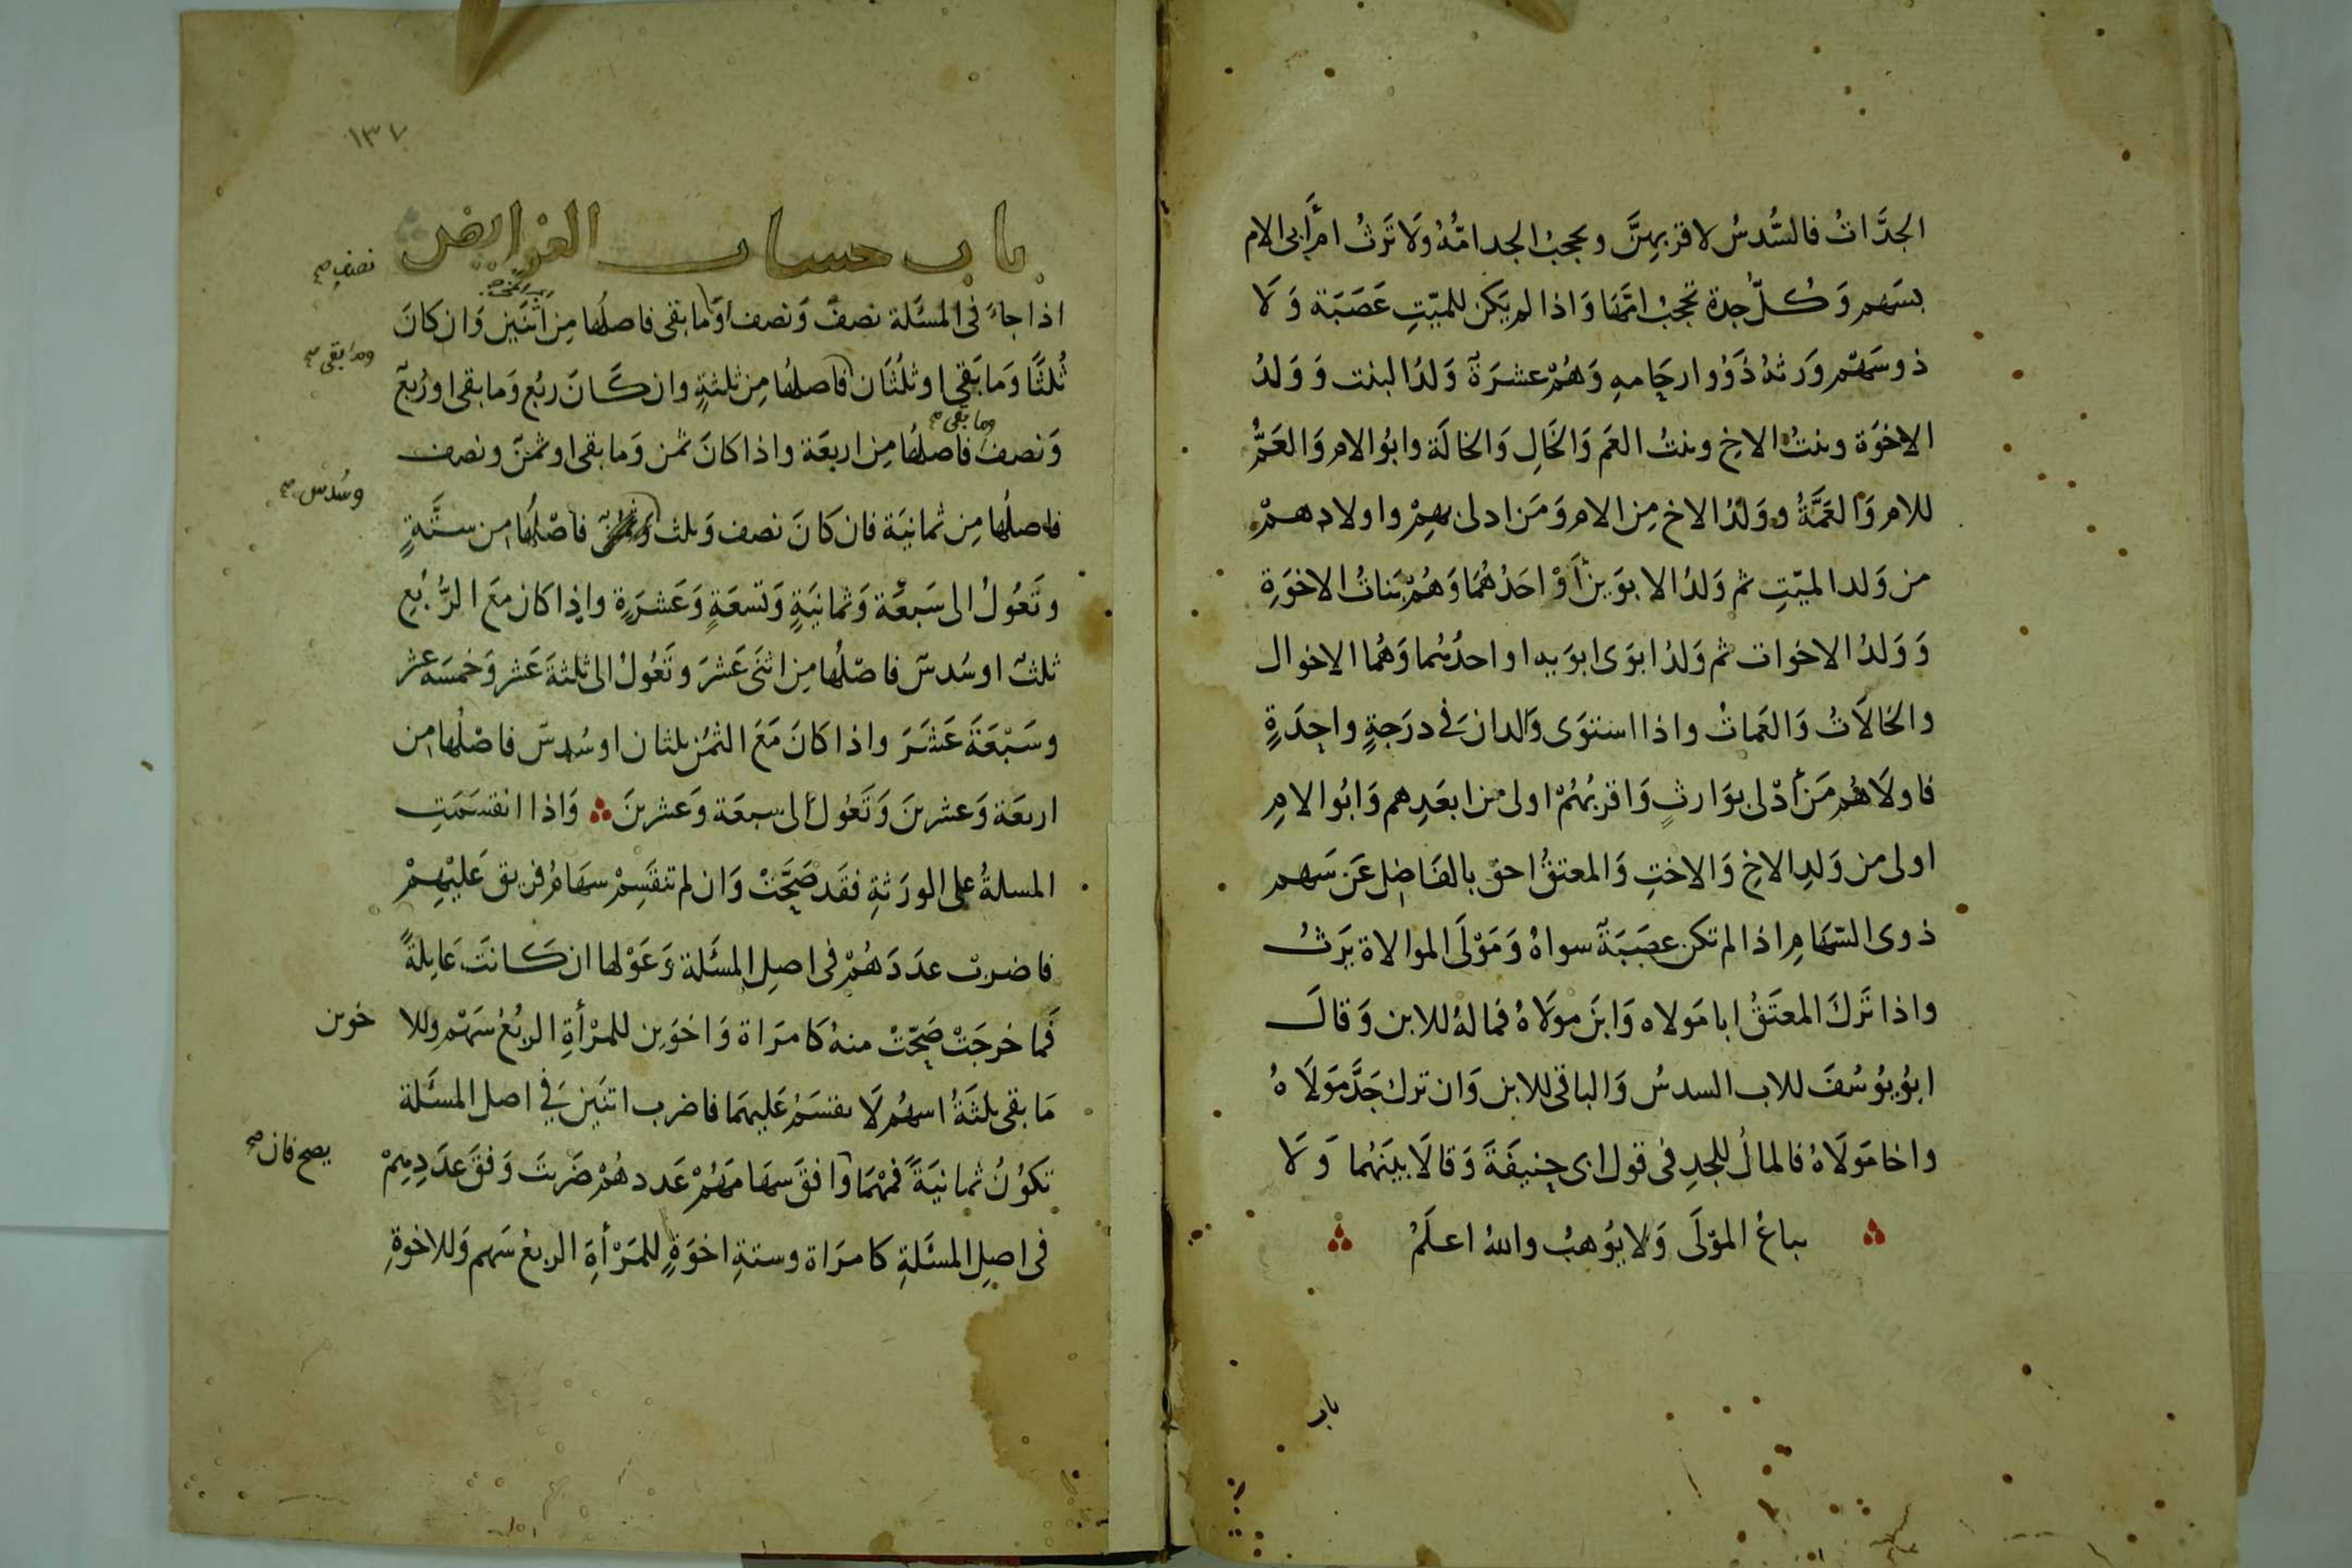 الجدَّاتُ فالسُّدسُ لاقربهِنَّ ويحجبُ الجد امّهُ وَلَا تَرثُ امُّ أَبى الام
بسَهم وَكُلُّ جدة تحجبُ امَّهَا وَاذا لم يَكن للميّتِ عَصَبَة وَلَا
ذو سَهْم وَرَثهُ ذَوُوا ارحَامهِ وَهُمْ عشرَةٌ وَلدُ البنت وَوَلدُ
الاخوَة وبنتُ الاخِ وبنتُ العَم وَالخَالِ وَالخالَة وابُو الام وَالعَمُّ
للام وَالعَمَّةُ ووَلَدُ الاخ مِن الام وَمَن ادلى بهِمْ واولادهمْ
من وَلد الميّتِ ثم وَلدُ الابوَين أَوْ احَدُهُمَا وَهُم بَناتُ الاخوَةِ
وَوَلدُ الاخوات ثم وَلدُ ابوَى ابوَيه او احدُهما وَهُما الاخوال
والخالَاتُ وَالعَماتُ واذا استوَى وَالدان فى درَجةٍ واحِدَةٍ
فاولَاهُم مَن أدْلى بوَارثٍ وَاقربُهُمْ اولى من ابعَدِهم وَابُو الامِ
اولى من وَلدِ الاخِ وَالاختِ وَالمعتقُ احقّ بالفَاضِل عَن سَهم
ذوى السّهَامِ اذا لم تكن عصَبَةٌ سواهُ وَمَوْلَى الموالاة يَرَثُ
واذا تَرَكَ المعتَقُ ابا مَولاه وَابنَ مولَاهُ فمالهُ للابن وَقالَ
ابوُ يوُسُفَ للاب السدسُ وَالباقى للابن وَان ترك جَدَّ مَولَاهُ
واخا مَولَاهُ فالمالُ للجدِ فى قول ابى حنيفَةَ وَقالَا بينَهُما وَلَا
يباعُ المَوْلَى وَلا يوُهبُ واللهُ اعلَمُ
باب
١٣٧
باب حساب الفرايض
نصف صح
اذا جاءَ فى المسئَلة نصفٌ وَنصف اوَ مَا بقى فاصلُها مِن اثنَين وَان كانَ
وما بقى صح
ثُلثًا وَمَا بَقى او ثلُثَان فاصلهُا مِن ثلثةٍ وان كَانَ ربُع وَما بقى او رُبعٌ
وما بقى صح
وَنصف فاصلهُا مِن اربعَة واذا كانَ ثمن وَما بقى او ثمنٌ ونصف
وسُدس صح
فاصلُها مِن ثمانيَة فان كَانَ نصف وَثلث فاصْلُها من ستَّةٍ
وتَعُولُ الى سَبعَة وَثمانيَةٍ وَتسعَةٍ وَعَشرَةٍ واِذا كان مَع الرُّبُع
ثلثٌ او سُدسٌ فاصْلُها مِن اثنَى عَشرَ وتَعُولُ الى ثلثةَ عَشر وَخمسَة عشر
وسَبْعَةَ عَشَرَ واذا كَانَ مَعَ الثمُن ثلثان او سُدسٌ فاصْلُها من
اربعَة وَعشرينَ وَتَعُولُ الى سبعَة وَعشرينَ وَاذا انقسَمَتِ
المسلةُ على الورَثةِ فقَد صَحَّتْ وَان لم تنقَسِمْ سهَامُ فريق عَليْهِمْ
فاضرب عدَدَهُمْ فى اصِل المسئَلة وَعَوْلها ان كَانَت عَايلةً
فَما خرجَتْ صَحّتْ منهُ كامرَاة وَاخوَين للمرْأةِ الربُعُ سَهْم وللا خوين
مَا بقى ثلثَةُ اسهُم لَا ينقسَمُ عَليهمَا فاضرب اثنَين فى اصل المسئَلة
تكوُنُ ثمانيَةً فمْهمَا وافقَ سهَامهُمْ عَددهُمْ ضَربتَ وَفقَ عدَدِهِمْ
يصح فان صح
فى اصِل المسئَلةِ كامرَاة وستةِ اخوَةٍ للمَرْأةِ الربعُ سَهم وَللاخوةِ